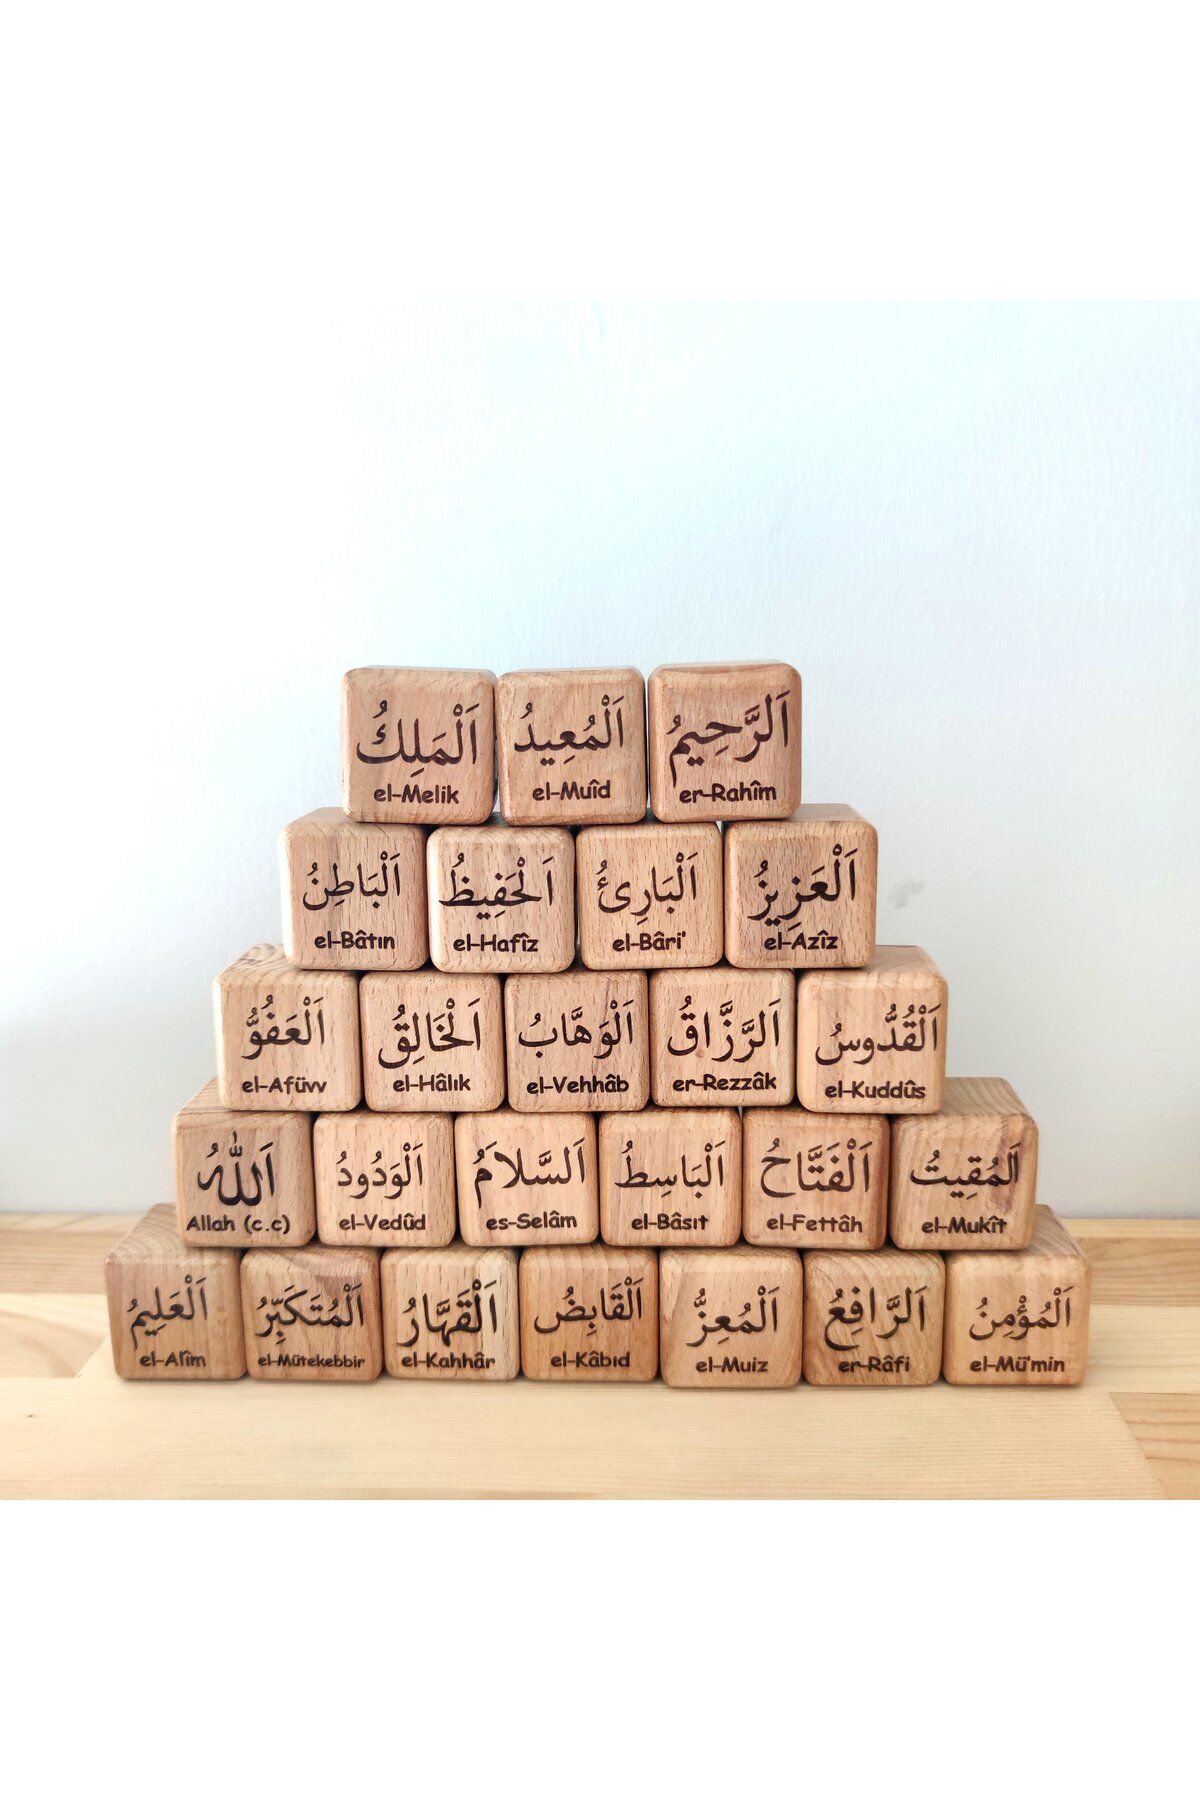 اَلْمَلِكُ
el-Melik
اَلْمُعِيدُ
el-Muîd
اَلرَّحِيمُ
er-Rahîm
اَلْبَاطِنُ
el-Bâtın
اَلْحَفِيظُ
el-Hafîz
اَلْبَارِئُ
el-Bâri'
اَلْعَزِيزُ
el-Azîz
اَلْعَفُوُّ
el-Afüvv
اَلْخَالِقُ
el-Hâlık
اَلْوَهَّابُ
el-Vehhâb
اَلرَّزَّاقُ
er-Rezzâk
اَلْقُدُّوسُ
el-Kuddûs
اَللّٰهُ
Allah (c.c)
اَلْوَدُودُ
el-Vedûd
اَلسَّلَامُ
es-Selâm
اَلْبَاسِطُ
el-Bâsıt
اَلْفَتَّاحُ
el-Fettâh
اَلْمُقِيتُ
el-Mukît
اَلْعَلِيمُ
el-Alîm
اَلْمُتَكَبِّرُ
el-Mütekebbir
اَلْقَهَّارُ
el-Kahhâr
اَلْقَابِضُ
el-Kâbıd
اَلْمُعِزُّ
el-Muiz
اَلرَّافِعُ
er-Râfi
اَلْمُؤْمِنُ
el-Mü'min